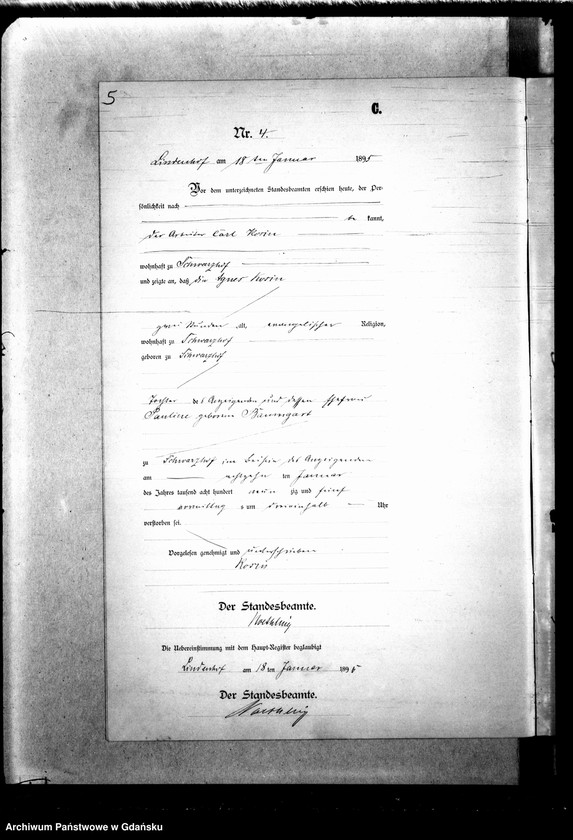 5
C.
Nr. 4.
Lindenhof am 18 ten Januar 1895
Vor dem unterzeichneten Standesbeamten erschien heute, der Per-
sönlichkeit nach
be kannt,
der Arbeiter Carl Kosin
wohnhaft zu Schwarzhof
und zeigte an, daß die Agnes Kosin
zwei Stunden alt, evangelischer Religion,
wohnhaft zu Schwarzhof
geboren zu Schwarzhof
Tochter des Anzeigenden und dessen Ehefrau
Pauline geborene Baumgart
zu Schwarzhof im Beisein des Anzeigenden
am achtzehn ten Januar
des Jahres tausend acht hundert neun zig und fünf
vormittag s um Uhr
verstorben sei.
Vorgelesen, genehmigt und unterschrieben
Kosin
Der Standesbeamte.
Die Uebereinstimmung mit dem Haupt-Register beglaubigt
Lindenhof am 18 ten Januar 1895
Der Standesbeamte.
Archiwum Państwowe w Gdańsku